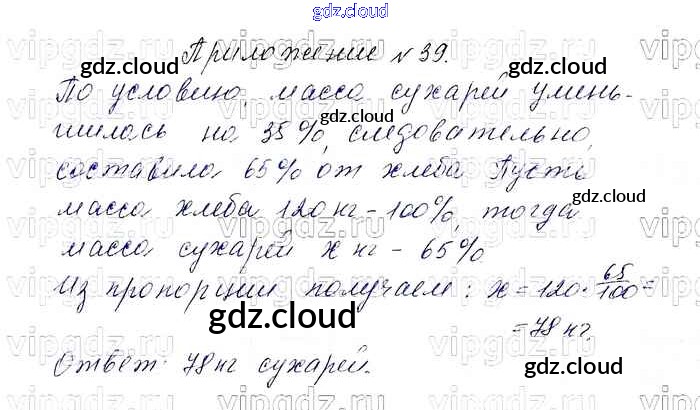 gdz.cloud
Приложение № 39.
По условию, масса сухарей умень-
шилась на 35%, следовательно,
составила 65% от хлеба. Пусть
масса хлеба 120 кг - 100%, тогда
масса сухарей x кг - 65%
Из пропорции получаем: x = 120 · 65/100 =
= 78 кг.
Ответ: 78 кг сухарей.
gdz.cloud
gdz.cloud
gdz.cloud
gdz.cloud
gdz.cloud
gdz.cloud
gdz.cloud
gdz.cloud